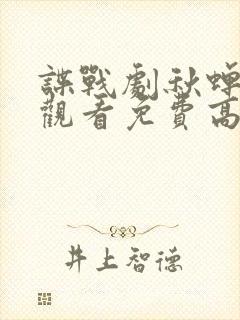 諜戰劇秋蟬
觀看免費高
井上智德